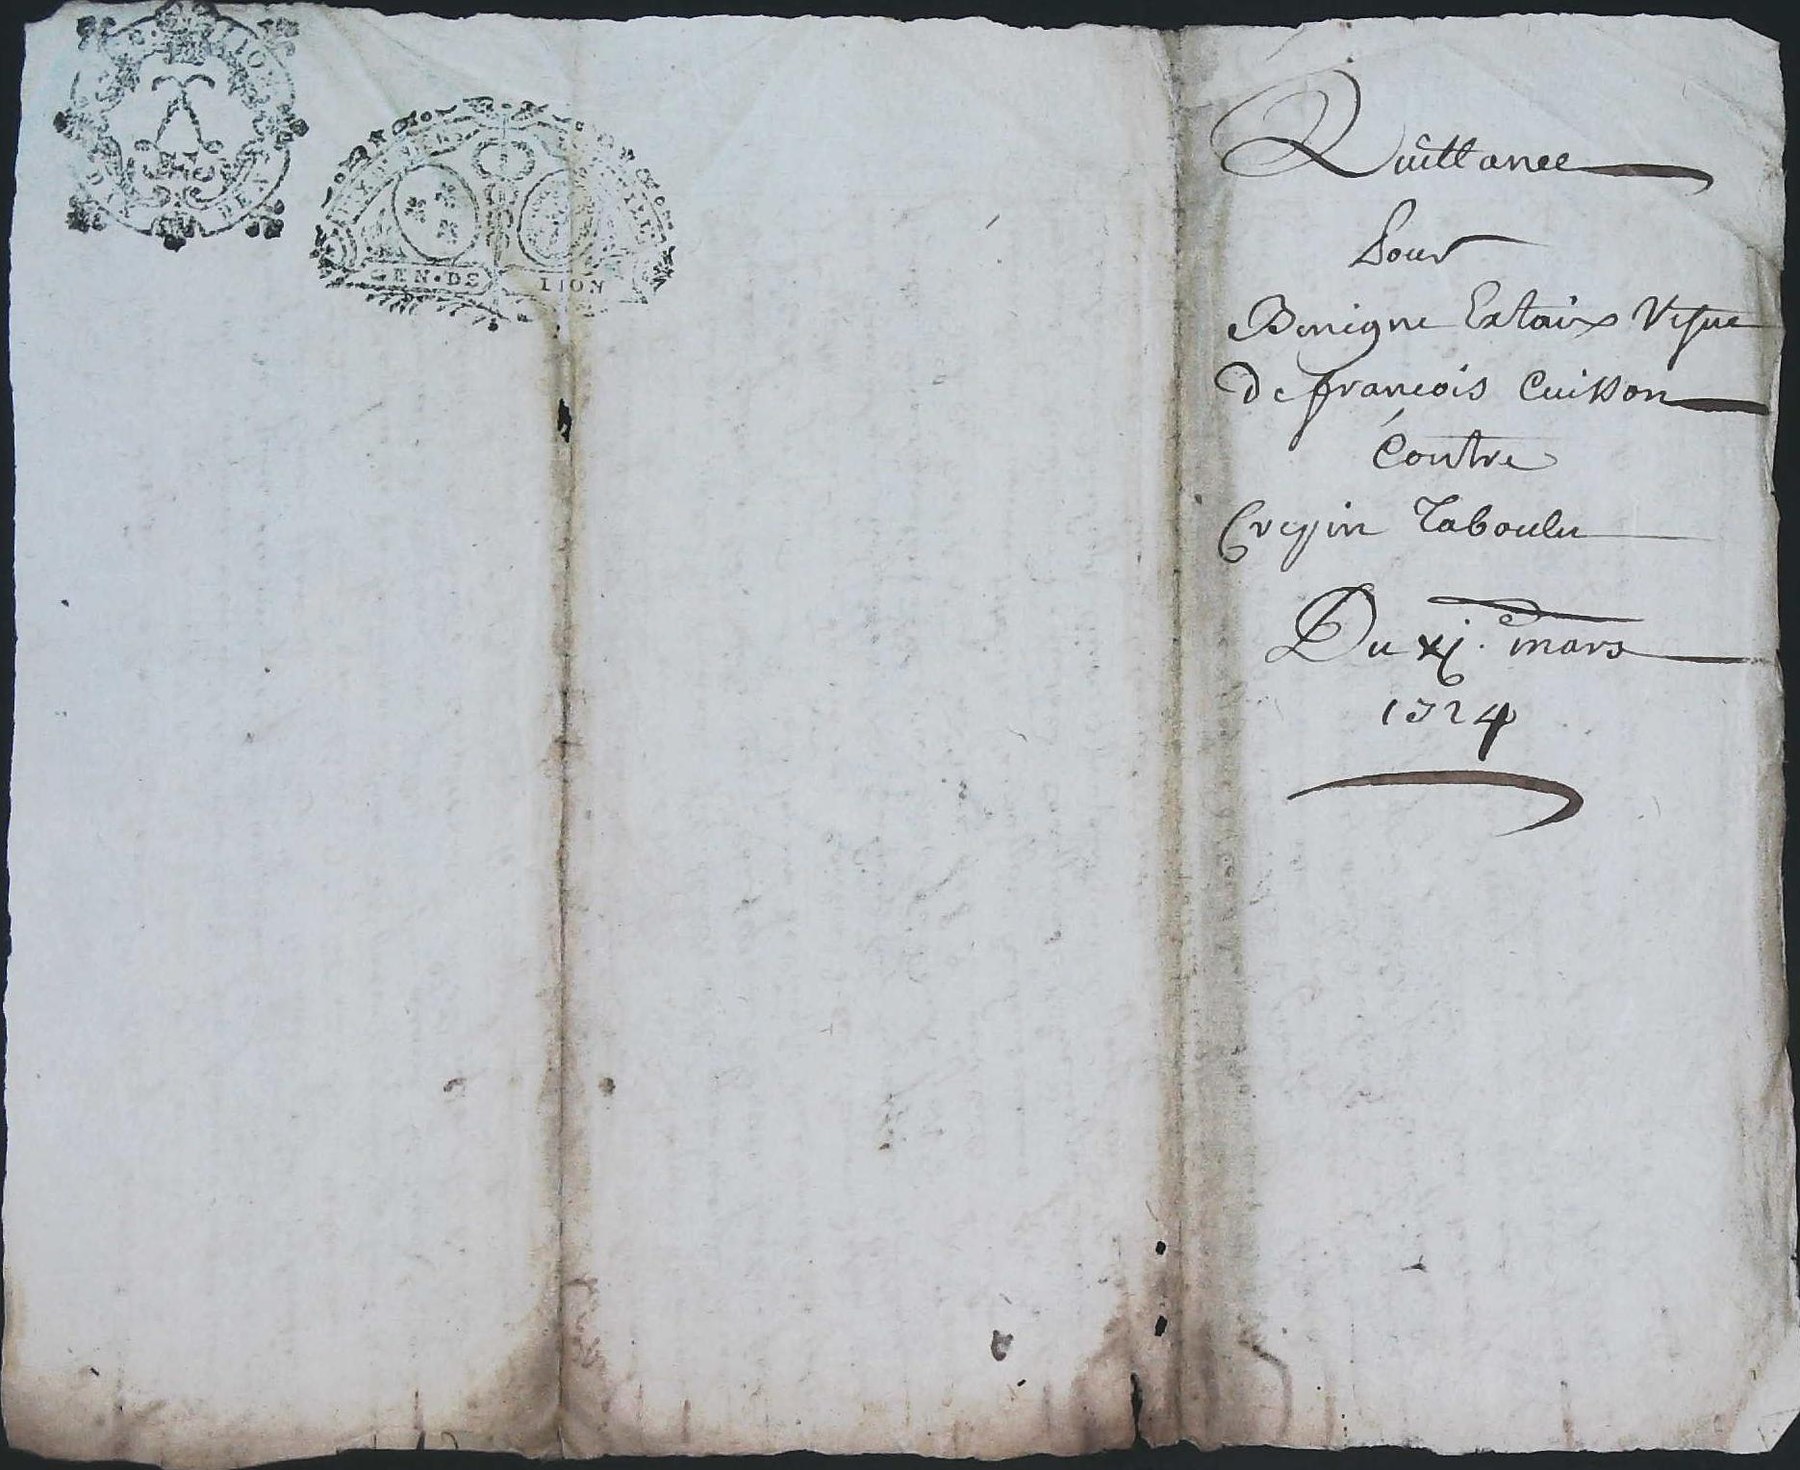 GEN·DE LION
Quittance
Pour
Benigne Extaix Vefue
De francois Cuisson
Contre
Crepin Taboulu
Du xj. mars
1724